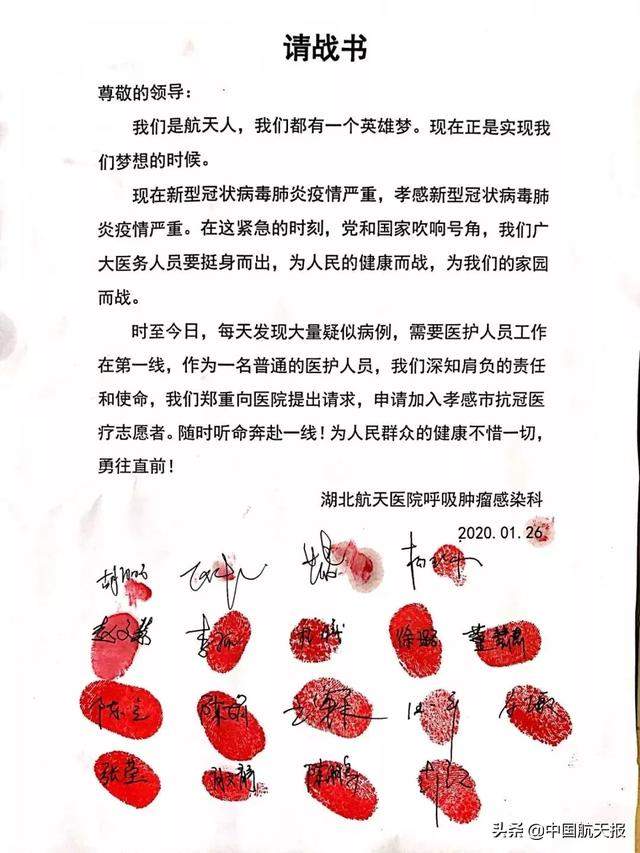 请战书
尊敬的领导：
我们是航天人，我们都有一个英雄梦。现在正是实现我
们梦想的时候。
现在新型冠状病毒肺炎疫情严重，孝感新型冠状病毒肺
炎疫情严重。在这紧急的时刻，党和国家吹响号角，我们广
大医务人员要挺身而出，为人民的健康而战，为我们的家园
而战。
时至今日，每天发现大量疑似病例，需要医护人员工作
在第一线，作为一名普通的医护人员，我们深知肩负的责任
和使命，我们郑重向医院提出请求，申请加入孝感市抗冠医
疗志愿者。随时听命奔赴一线！为人民群众的健康不惜一切，
勇往直前！
湖北航天医院呼吸肿瘤感染科
2020.01.26
徐璐
张莹
头条@中国航天报